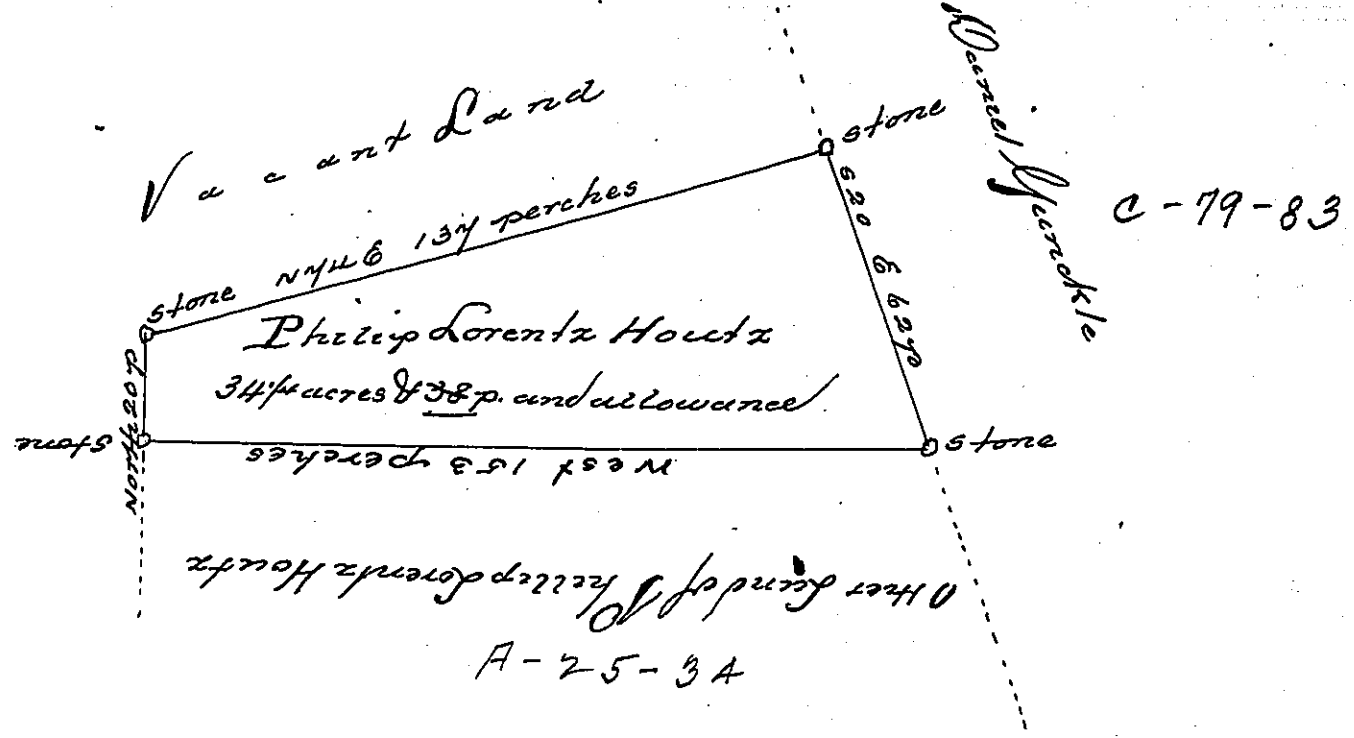 Vacant Land
stone
Daniel Gunckle
C-79-83
N74E 137 perches
S20E 62p
stone
Philip Lorentz Houtz
34 1/4 acres & 38 p. and allowance
North 20p
stone
West 153 perches
stone
Other Land of Phillip Lorentz Houtz
A-25-34